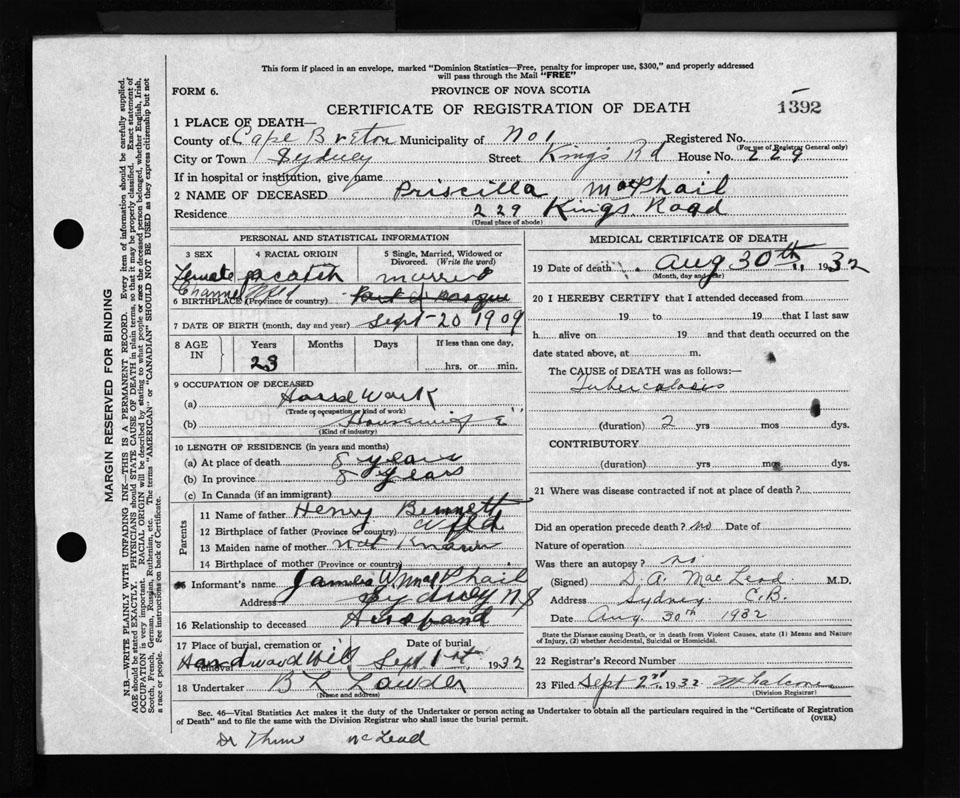 This form if placed in an envelope, marked "Dominion Statistics—Free, penalty for improper use, $300," and properly addressed
will pass through the Mail "FREE"
FORM 6. PROVINCE OF NOVA SCOTIA
CERTIFICATE OF REGISTRATION OF DEATH 1392
1 PLACE OF DEATH—
County of Cape Breton Municipality of No 1 Registered No.
(For use of Registrar General only)
City or Town Sydney Street Kings Rd House No. 229
If in hospital or institution, give name
2 NAME OF DECEASED Priscilla MacPhail
Residence 229 Kings Road
(Usual place of abode)
PERSONAL AND STATISTICAL INFORMATION
3 SEX 4 RACIAL ORIGIN 5 Single, Married, Widowed or Divorced. (Write the word)
Female Scotch married
Channel Nfld
6 BIRTHPLACE (Province or country) Port
7 DATE OF BIRTH (month, day and year) Sept 20 1909
8 AGE IN Years Months Days If less than one day,
23 hrs. or min.
9 OCCUPATION OF DECEASED
(a) House Work
(Trade or occupation or kind of work)
(b) Housewife
(Kind of industry)
10 LENGTH OF RESIDENCE (in years and months)
(a) At place of death 8 years
(b) In province 8 years
(c) In Canada (if an immigrant)
Parents
11 Name of father Henry Bennett
12 Birthplace of father (Province or country) Nfld
13 Maiden name of mother not Known
14 Birthplace of mother (Province or country)
Informant's name James W MacPhail
Address Sydney NS
16 Relationship to deceased Husband
17 Place of burial, cremation or removal Date of burial
Hardwood Hill Sept 1st 1932
18 Undertaker B L Lowder
(Name and address)
MEDICAL CERTIFICATE OF DEATH
19 Date of death Aug 30th 1932
(Month, day and year)
20 I HEREBY CERTIFY that I attended deceased from
19 to 19 that I last saw
h alive on 19 and that death occurred on
date stated above, at m.
The CAUSE of DEATH was as follows:—
Tuberculosis
(duration) 2 yrs mos dys.
CONTRIBUTORY
(duration) yrs mos dys.
21 Where was disease contracted if not at place of death?
Did an operation precede death? no Date of
Nature of operation
Was there an autopsy? no
(Signed) D. A. MacLeod M.D.
Address Sydney C.B.
Date Aug. 30th 1932
State the Disease causing Death, or in death from Violent Causes, state (1) Means and Nature
of Injury, (2) whether Accidental, Suicidal or Homicidal.
22 Registrar's Record Number
23 Filed Sept 2nd 1932
(Division Registrar)
Sec. 46—Vital Statistics Act makes it the duty of the Undertaker or person acting as Undertaker to obtain all the particulars required in the "Certificate of Registration
of Death" and to file the same with the Division Registrar who shall issue the burial permit. (OVER)
Dr McLeod
MARGIN RESERVED FOR BINDING
N.B.—WRITE PLAINLY WITH UNFADING INK—THIS IS A PERMANENT RECORD. Every item of information should be carefully supplied.
AGE should be stated EXACTLY. PHYSICIANS should STATE CAUSE OF DEATH in plain terms, so that it may be properly classified. Exact statement of
OCCUPATION is very important. RACIAL ORIGIN will be described by stating to what people or race the deceased person belonged, whether English, Irish,
Scotch, French, German, Russian, Ruthenian, etc. The terms "AMERICAN" or "CANADIAN" SHOULD NOT BE USED as they express citizenship but not
a race or people. See instructions on back of Certificate.